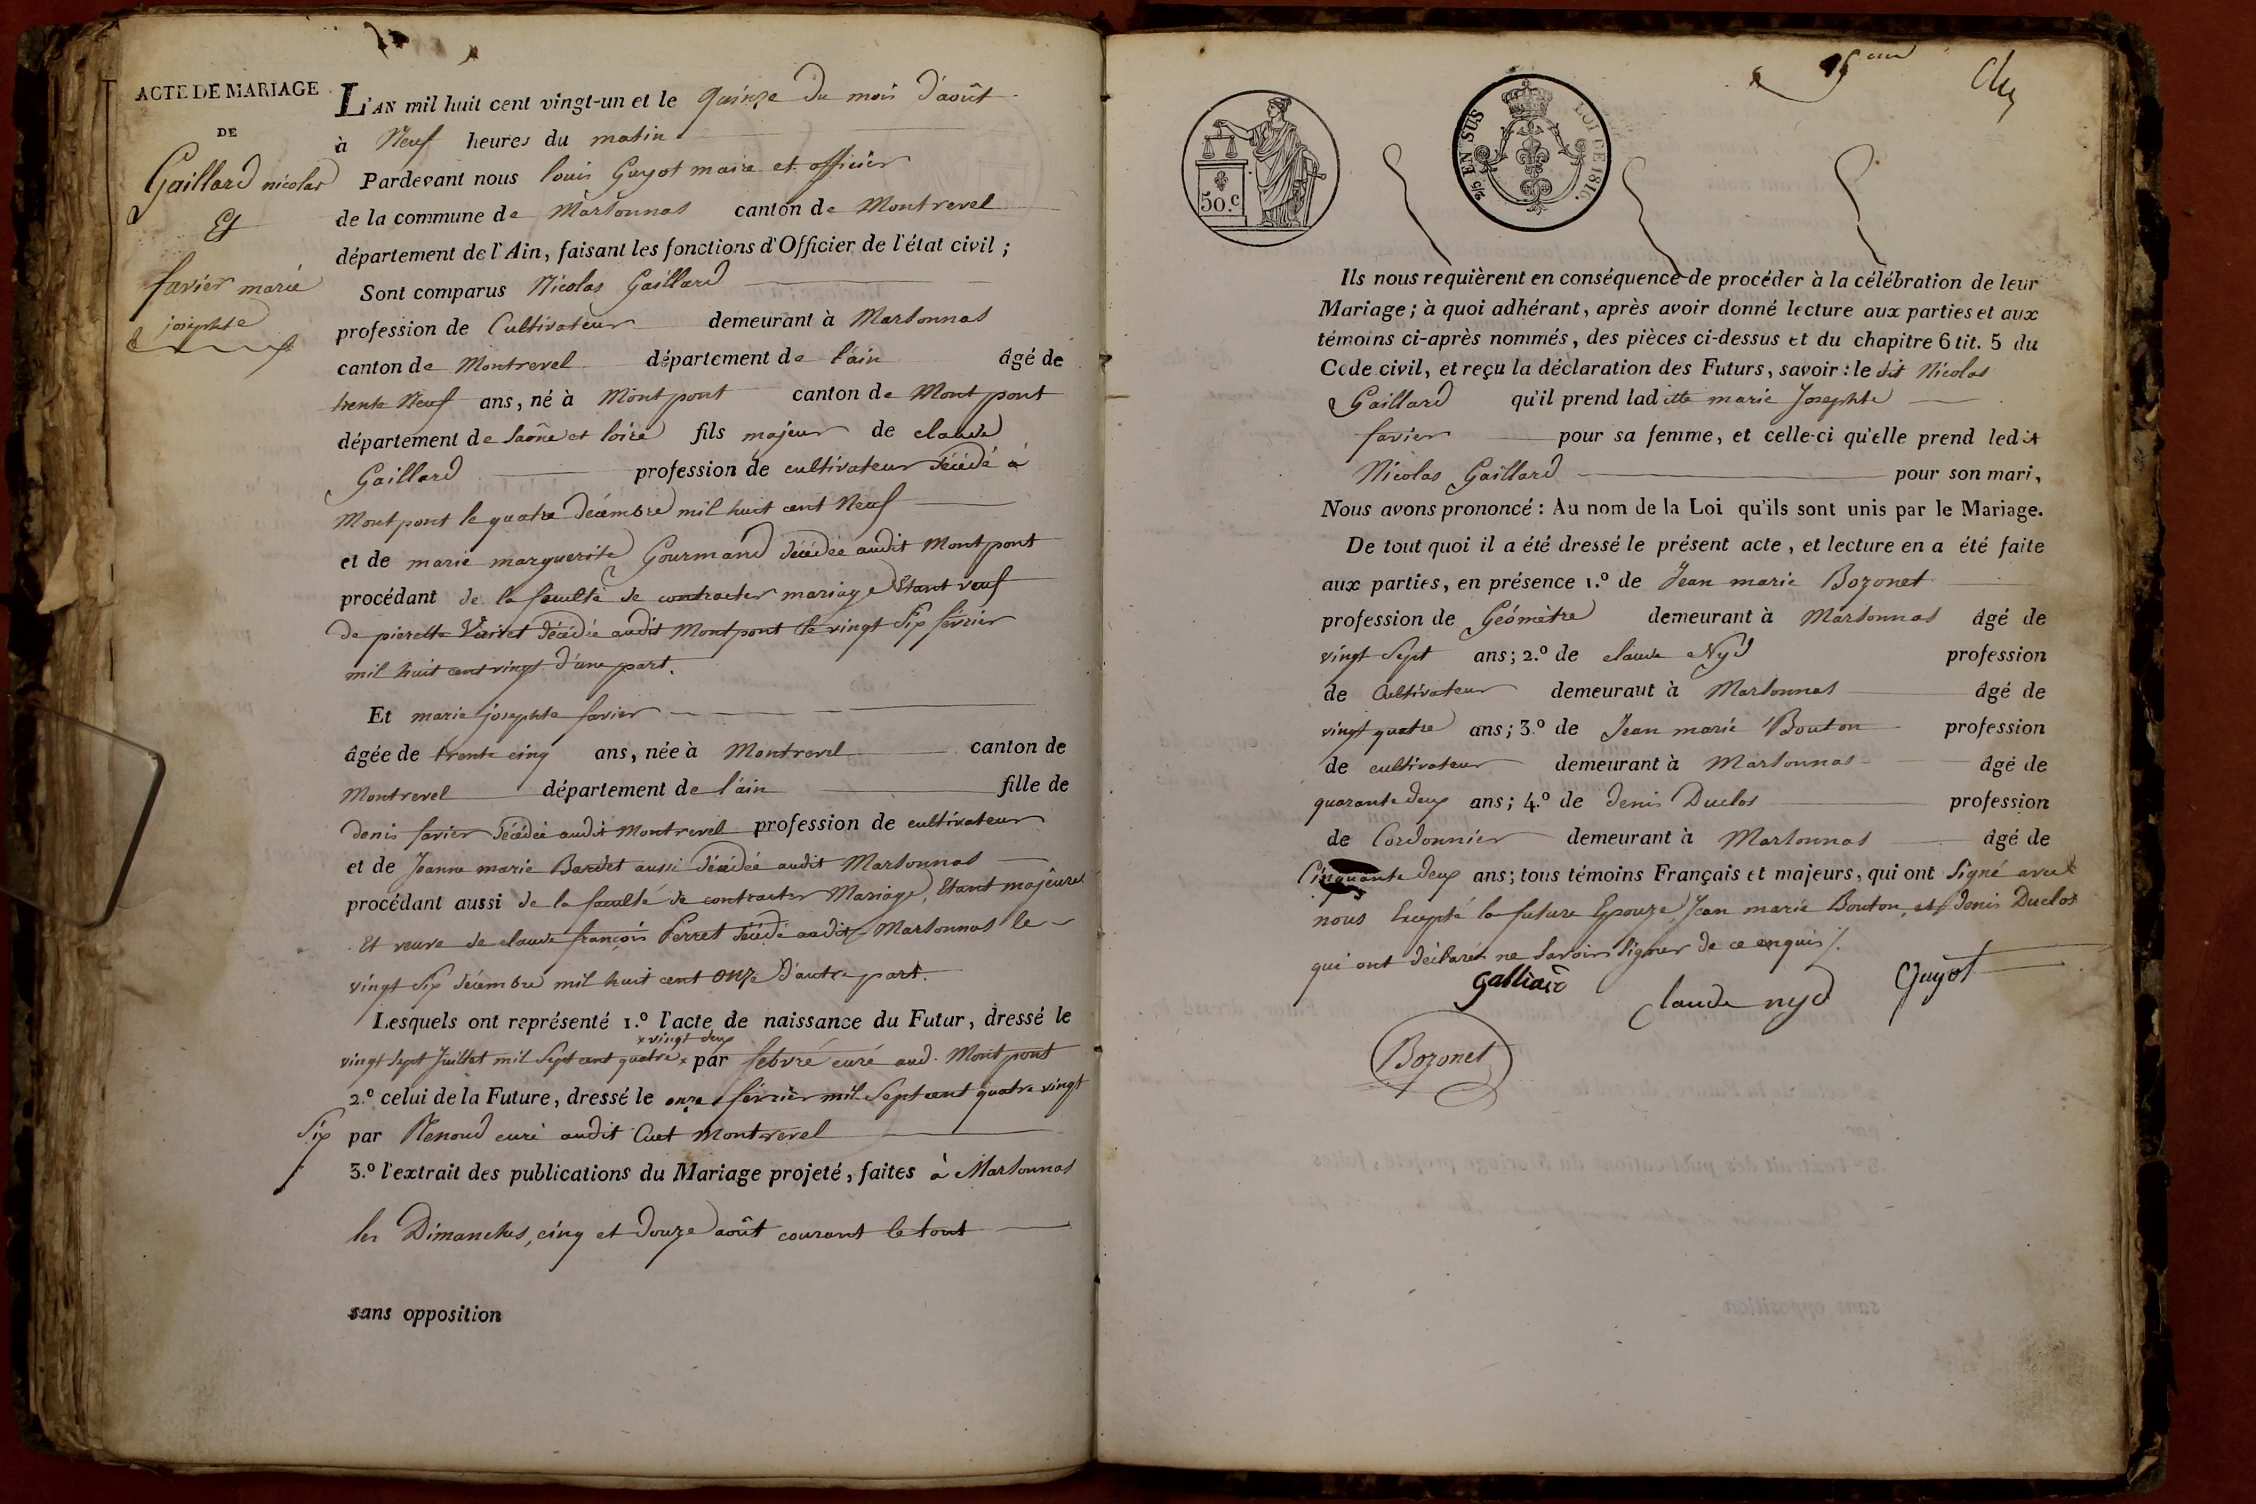 ACTE DE MARIAGE
DE
Gaillard nicolas
Et
favier marie
josephte
L'AN mil huit cent vingt-un et le quinze du mois d'août
à Neuf heures du matin
Pardevant nous louis Guyot maire et officier
de la commune de Marsonnas canton de Montrevel
département de l'Ain, faisant les fonctions d'Officier de l'état civil ;
Sont comparus Nicolas Gaillard
profession de Cultivateur demeurant à Marsonnas
canton de Montrevel département de l'ain âgé de
trente Neuf ans, né à Montpont canton de Montpont
département de saône et loire fils majeur de claude
Gaillard profession de cultivateur décédé à
Montpont le quatre décembre mil huit cent Neuf
et de marie marguerite Gourmand décédée audit Montpont
procédant de la faculté de contracter mariage Etant veuf
de pierette décédée audit Montpont le vingt six février
mil huit cent vingt d'une part.
Et marie josephte favier
âgée de trente cinq ans, née à Montrevel canton de
Montrevel département de l'ain fille de
denis favier décédé audit Montrevel profession de cultivateur
et de Jeanne marie Bardet aussi décédée audit Marsonnas
procédant aussi de la faculté de contracter Mariage, Etant majeure
Et veuve de claude françois Perret décédé audit Marsonnas le
vingt six décembre mil huit cent onze d'autre part.
Lesquels ont représenté 1.º l'acte de naissance du Futur, dressé le
x vingt deux
vingt sept Juillet mil sept cent quatre x par febvré curé aud. Montpont
2.º celui de la Future, dressé le onze février mil sept cent quatre vingt
six par Renoud curé audit Cuet Montrevel
3.º l'extrait des publications du Mariage projeté, faites à Marsonnas
les Dimanches, cinq et douze août courant le tout
sans opposition
50.C
2/5 EN SUS
LOI DE 1816.
Ils nous requièrent en conséquence de procéder à la célébration de leur
Mariage ; à quoi adhérant, après avoir donné lecture aux parties et aux
témoins ci-après nommés, des pièces ci-dessus et du chapitre 6 tit. 5 du
Code civil, et reçu la déclaration des Futurs, savoir : le dit Nicolas
Gaillard qu'il prend laditte marie Josephte
favier pour sa femme, et celle-ci qu'elle prend ledit
Nicolas Gaillard pour son mari,
Nous avons prononcé : Au nom de la Loi qu'ils sont unis par le Mariage.
De tout quoi il a été dressé le présent acte, et lecture en a été faite
aux parties, en présence 1.º de Jean marie Bozonet
profession de Géomètre demeurant à Marsonnas âgé de
vingt sept ans ; 2.º de claude Nyd profession
de Cultivateur demeurant à Marsonnas âgé de
vingt quatre ans ; 3.º de Jean marie Bouton profession
de cultivateur demeurant à Marsonnas âgé de
quarante deux ans ; 4.º de denis Duclos profession
de Cordonnier demeurant à Marsonnas âgé de
Cinquante deux ans ; tous témoins Français et majeurs, qui ont signé avec
nous Excepté la future Epouze, Jean marie Bouton, et denis Duclos
qui ont déclaré ne savoir signer de ce enquis /.
galliard
Claude nyd
Guyot
Bozonet